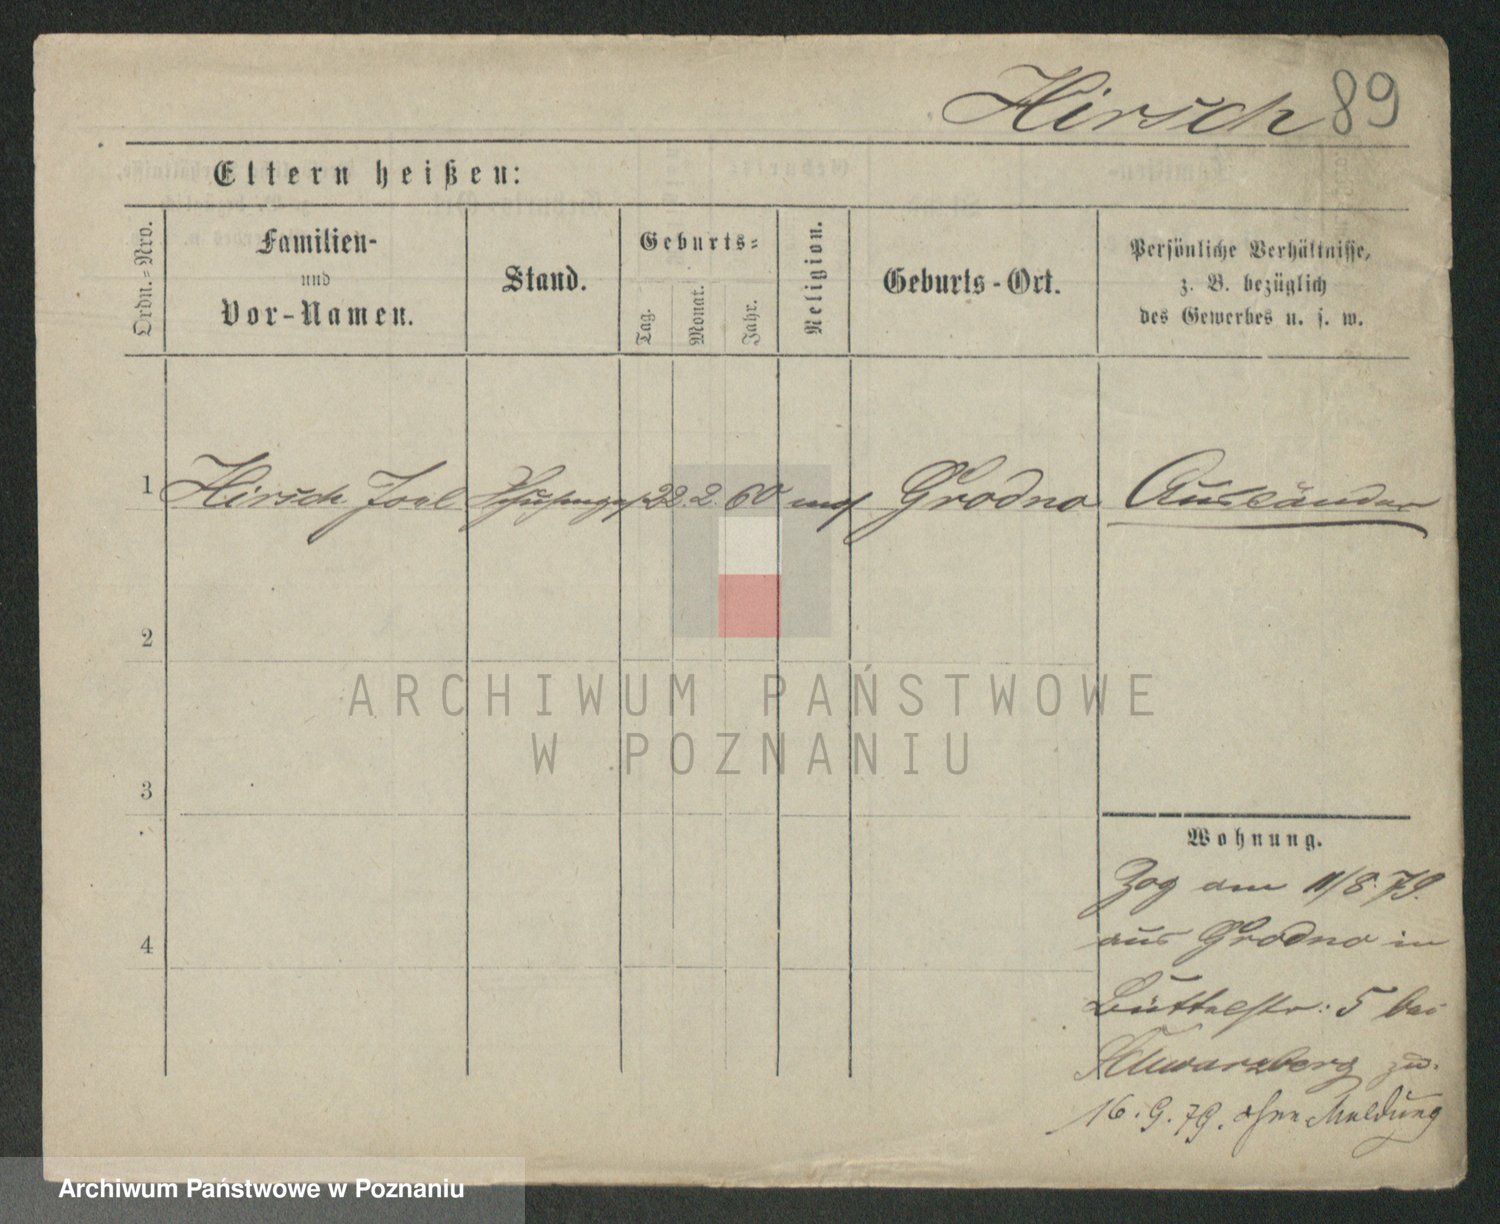 Hirsch 89
Eltern heißen:
Ordn.-Nro.
Familien-
und
Vor-Namen.
Stand.
Geburts-
Tag.
Monat.
Jahr.
Religion.
Geburts-Ort.
Persönliche Verhältnisse,
z. B. bezüglich
des Gewerbes u. s. w.
1 Hirsch Joel 22. 2. 60 mos Grodno Ausländer
2
3
4
Wohnung.
Zog am 11/8. 79.
aus Grodno in
Büttelstr: 5 bei
Schwarzberg zu.
16. 9. 79. ohne Meldung
ARCHIWUM PAŃSTWOWE
W POZNANIU
Archiwum Państwowe w Poznaniu